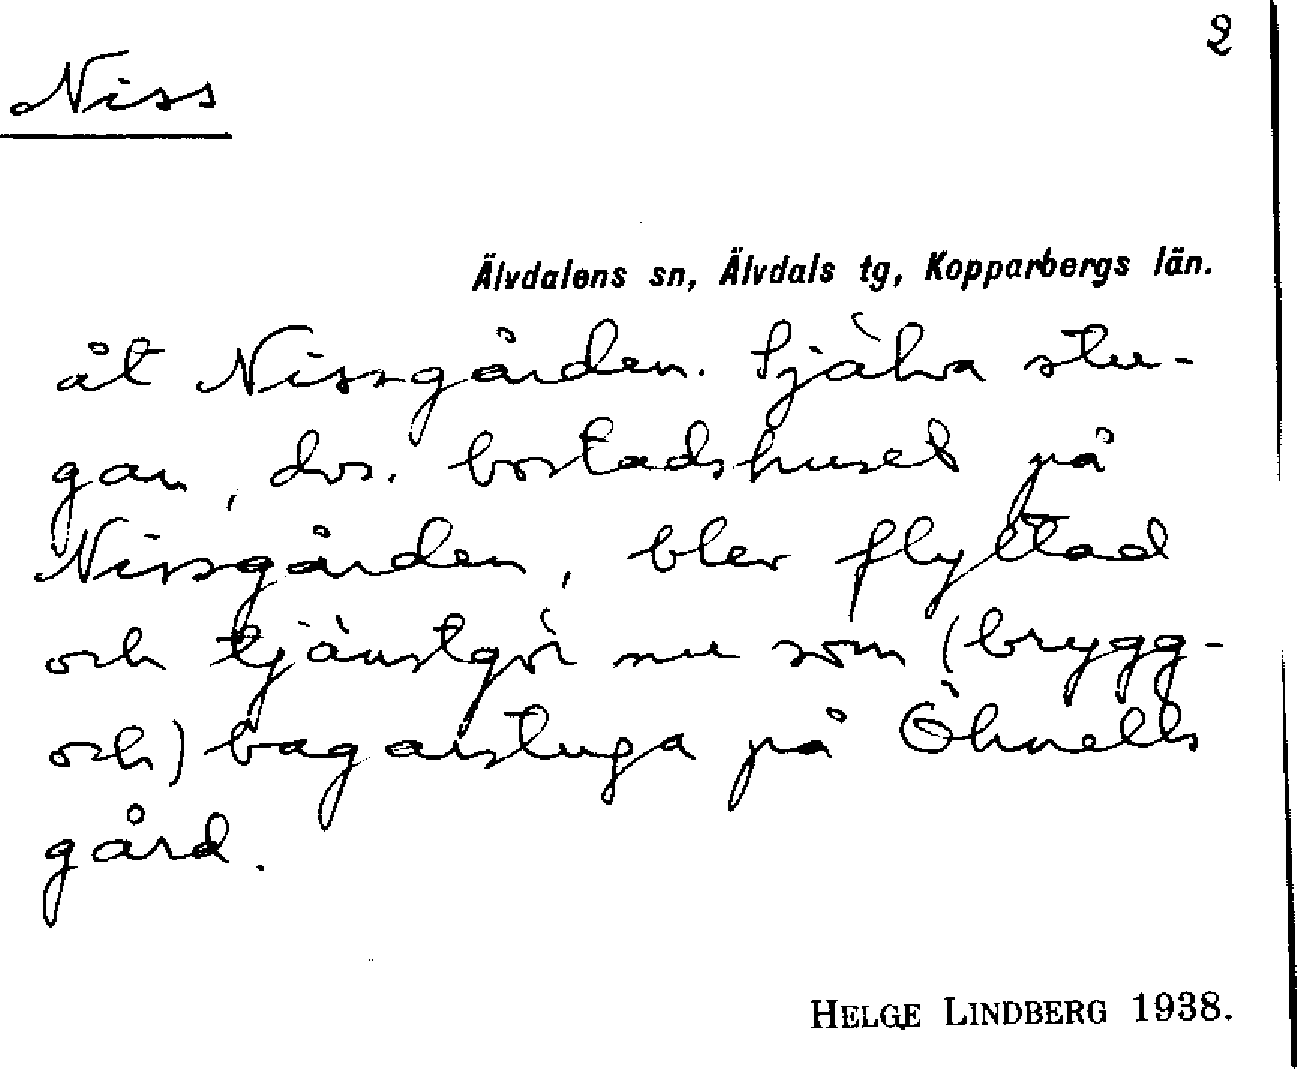 2
Niss
Älvdalens sn, Älvdals tg, Kopparbergs län.
åt Nissgården. Själva stu-
gan, dvs. bostadshuset på
Nissgården, blev flyttad
och tjänstgör nu som (brygg-
och) bagarstuga på Öhnells
gård.
HELGE LINDBERG 1938.